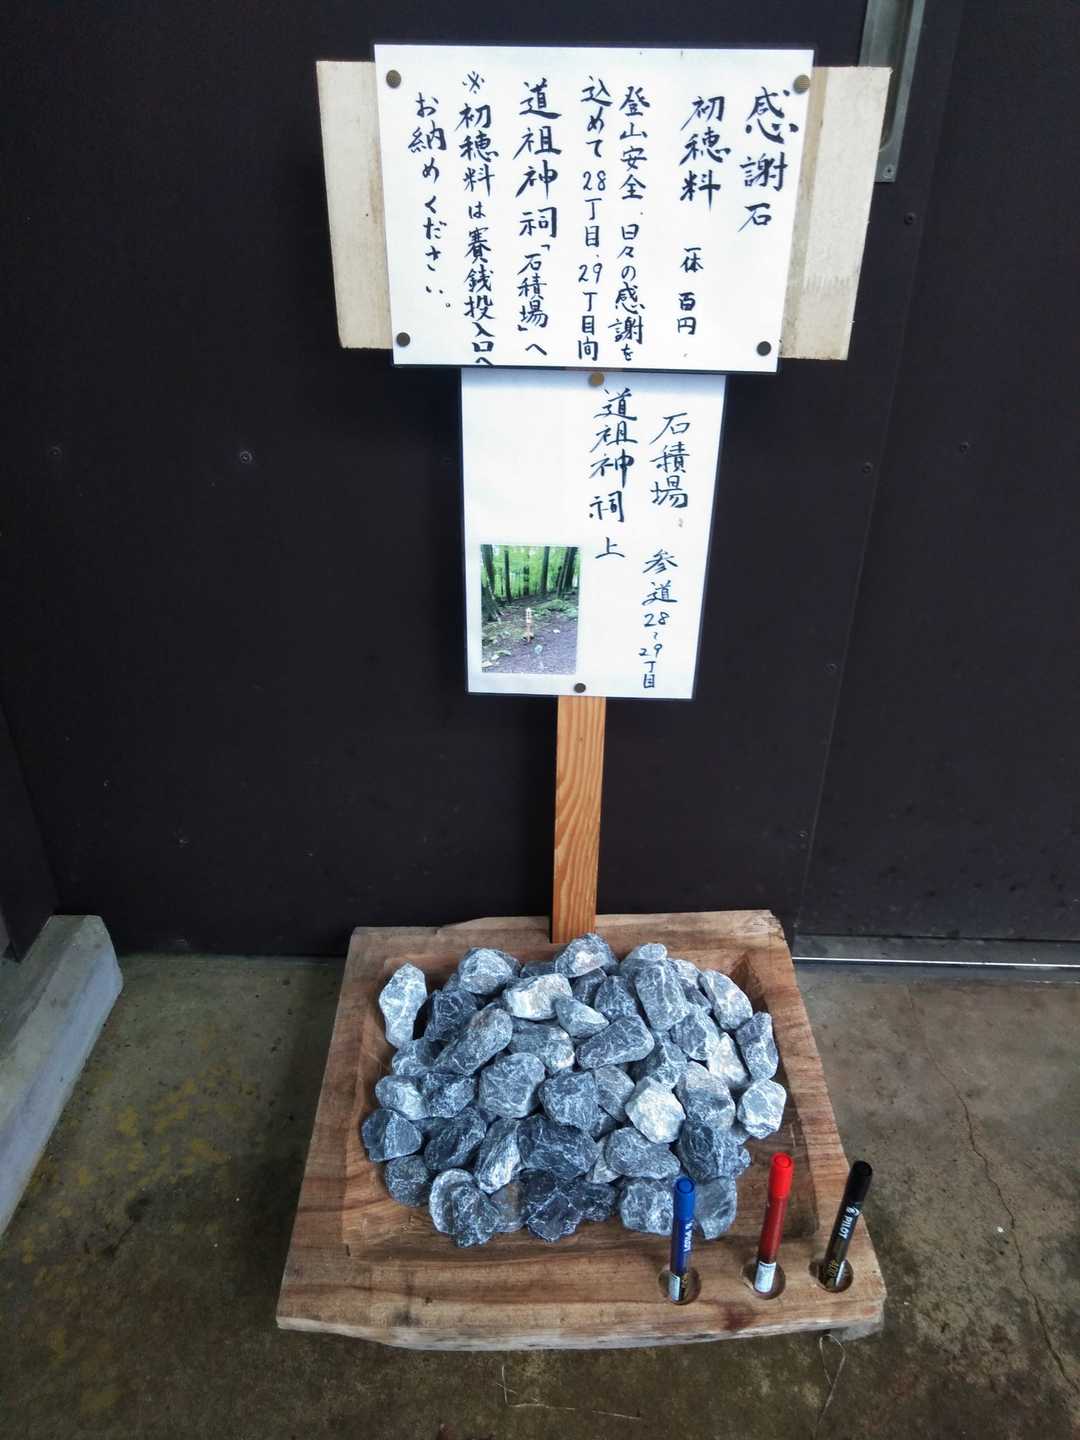 感謝石
初穂料 一体 百円
登山安全、日々の感謝を
込めて28丁目、29丁目間
道祖神祠「石積場」へ
※初穂料は賽銭投入口へ
お納めください。
石積場、参道28〜29丁目
道祖神祠上
PILOT
PILOT